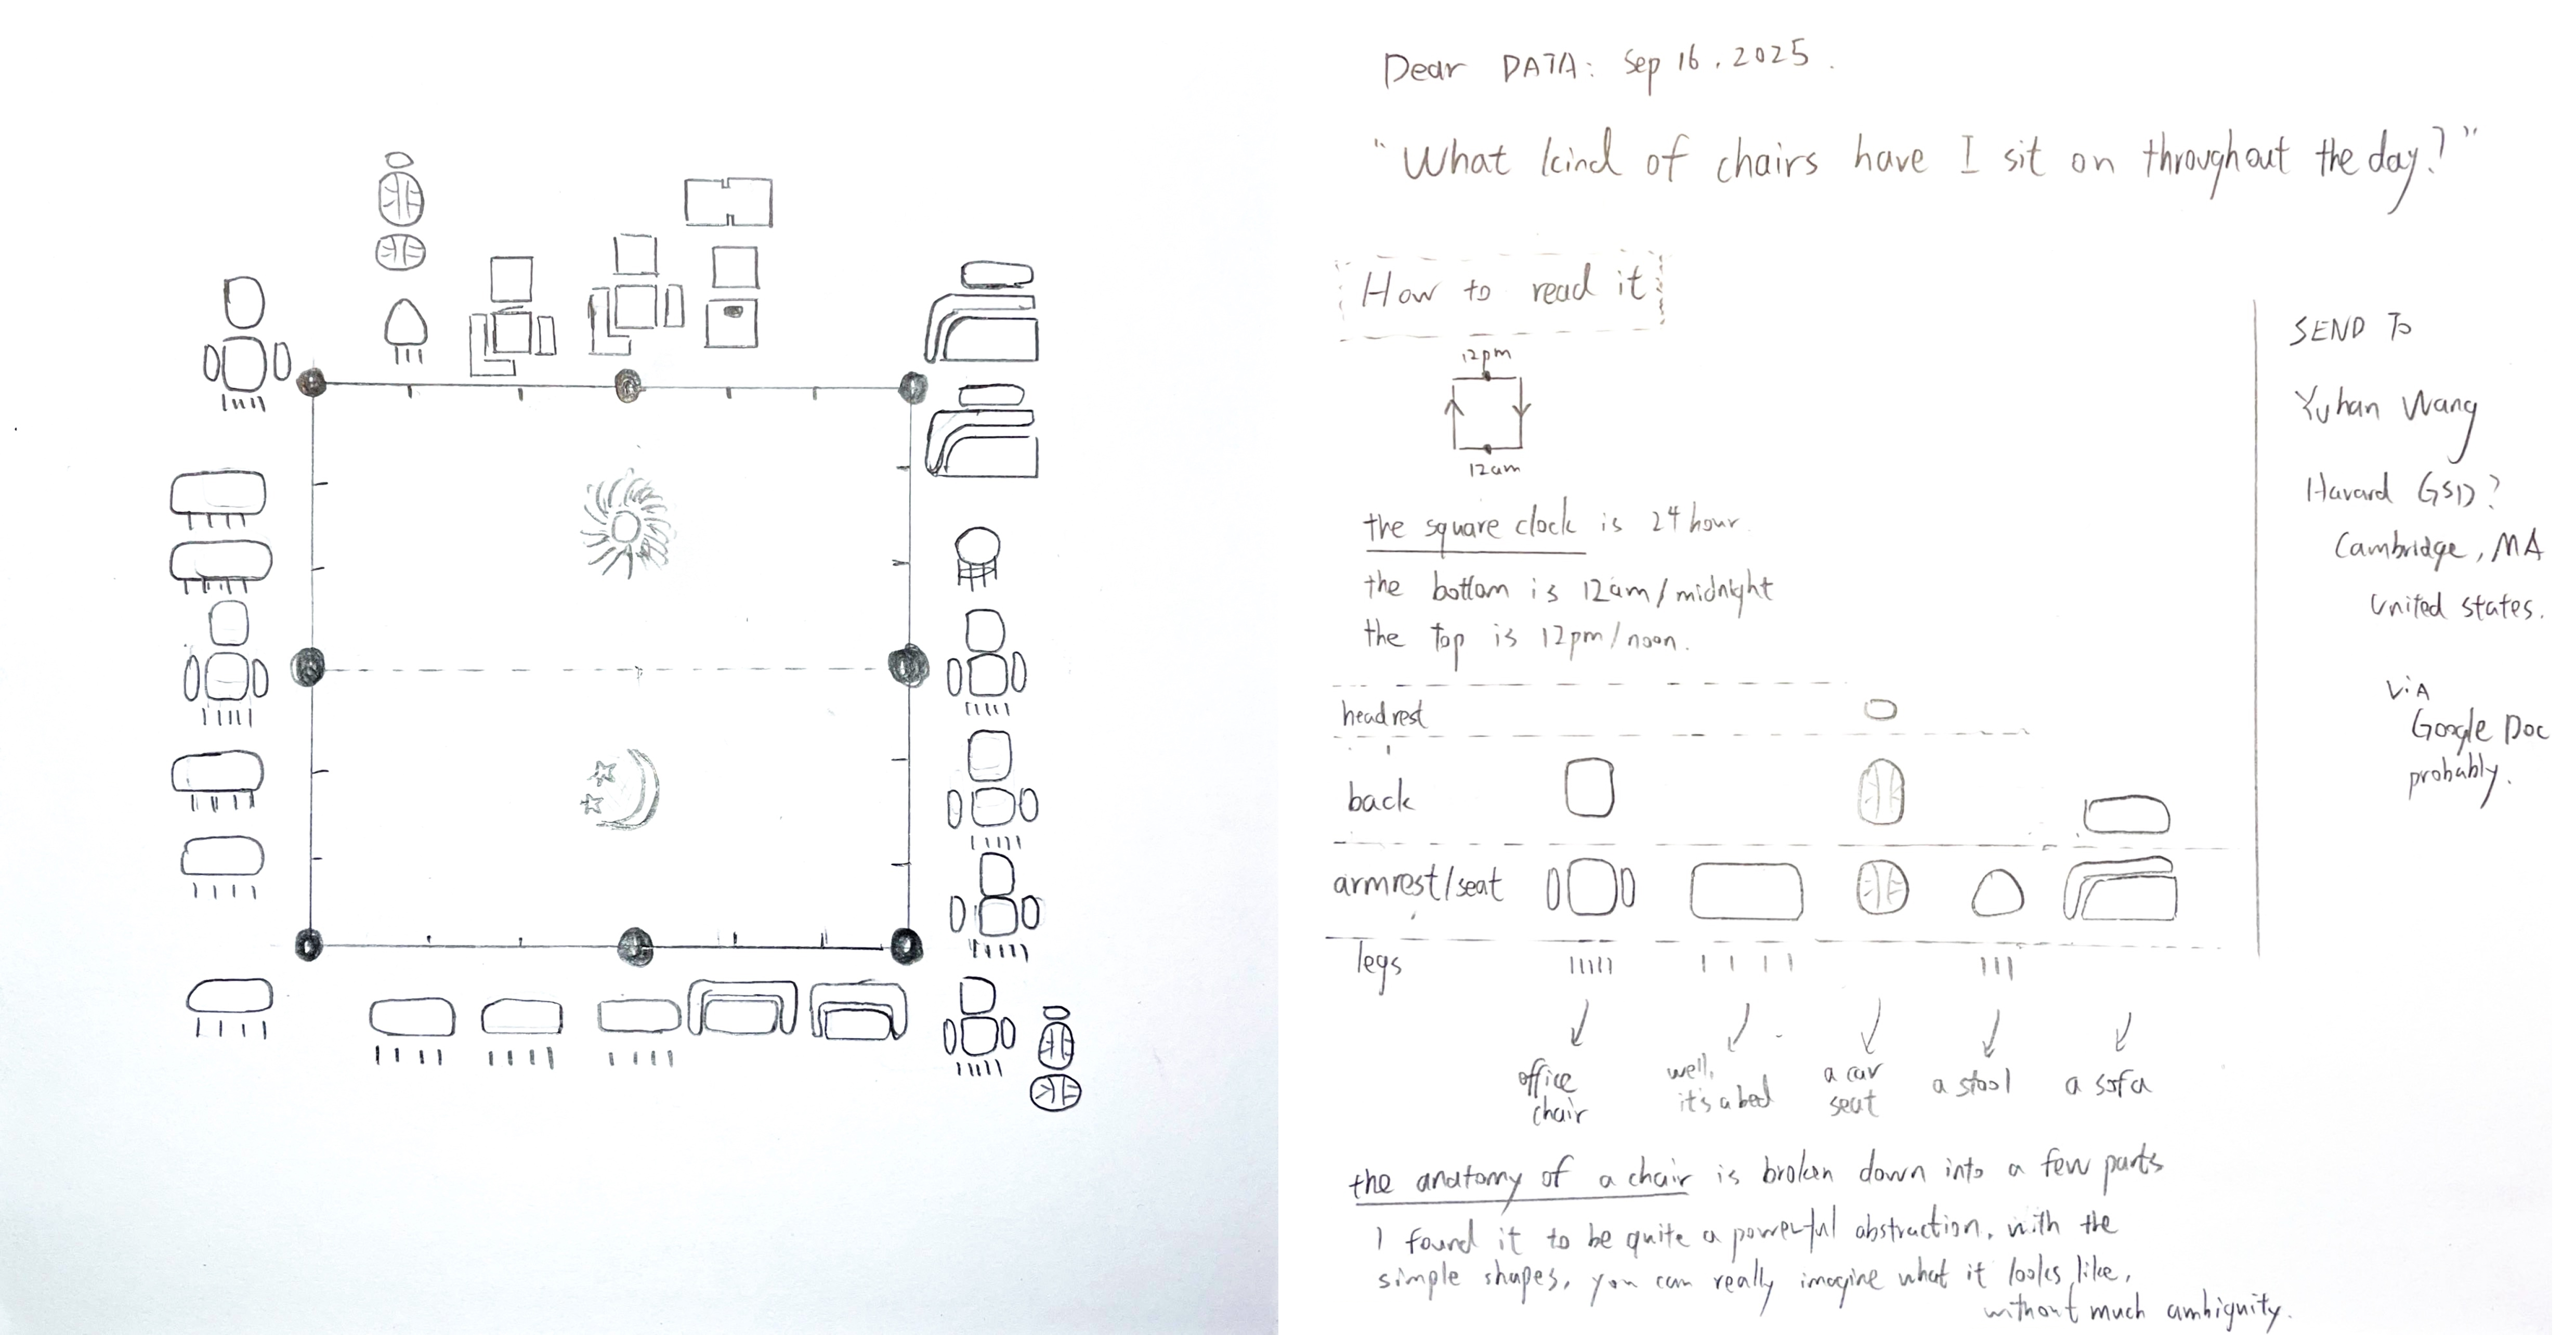 Dear DATA: Sep 16, 2025.
"What kind of chairs have I sit on throughout the day?"
How to read it
12pm
12am
the square clock is 24 hour.
the bottom is 12am/midnight
the top is 12pm/noon.
headrest
back
armrest/seat
legs
office
chair
well,
it's a bed
a car
seat
a stool
a sofa
the anatomy of a chair is broken down into a few parts
I found it to be quite a powerful abstraction, with the
simple shapes, you can really imagine what it looks like,
without much ambiguity.
SEND TO
Yuhan Wang
Havard GSD?
Cambridge, MA
United states.
ViA
Google Doc
probably.